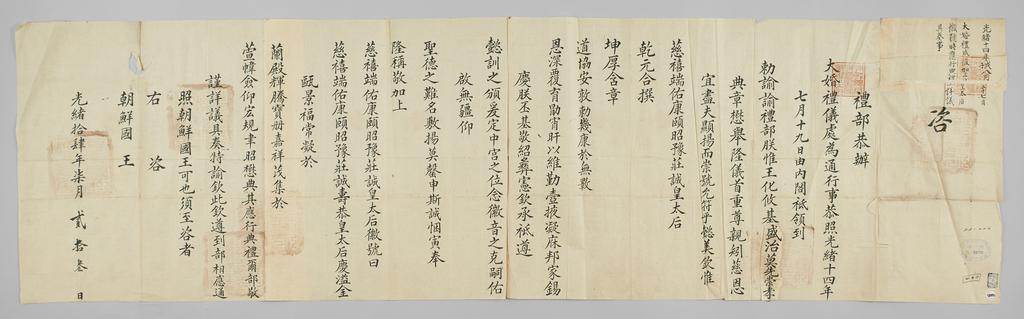 咨
禮部恭辦
大婚禮儀處為通行事恭照光緒十四年
七月十九日由内閣祗領到
勅諭諭禮部朕惟王化攸基盛治
典章懋舉隆儀首重尊親矧慈恩
宜盡夫顯揚而崇號允符乎懿美欽惟
慈禧端佑康頤昭豫莊誠皇太后
乾元合撰
坤厚含章
道協安敦勅幾康於無斁
恩深覆育勖宵旰以維勤壼掖凝庥邦家錫
慶朕丕基敬紹彝憲欽承祗遵
懿訓之頒爰定中宮之位念徽音之克嗣佑
啟無疆仰
聖德之難名敷揚莫罄申斯誠悃寅奉
隆稱敬加上
慈禧端佑康頤昭豫莊誠皇太后徽號曰
慈禧端佑康頤昭豫莊誠壽恭皇太后慶溢全
甌景福常凝於
蘭殿輝騰寶册嘉祥茂集於
萱幃僉仰宏規聿昭懋典其應行典禮爾部敬
謹詳議具奏特諭欽此欽遵到部相應通
照朝鮮國王可也須至咨者
右咨
朝鮮國王
光緒拾肆年柒月貳拾叁日